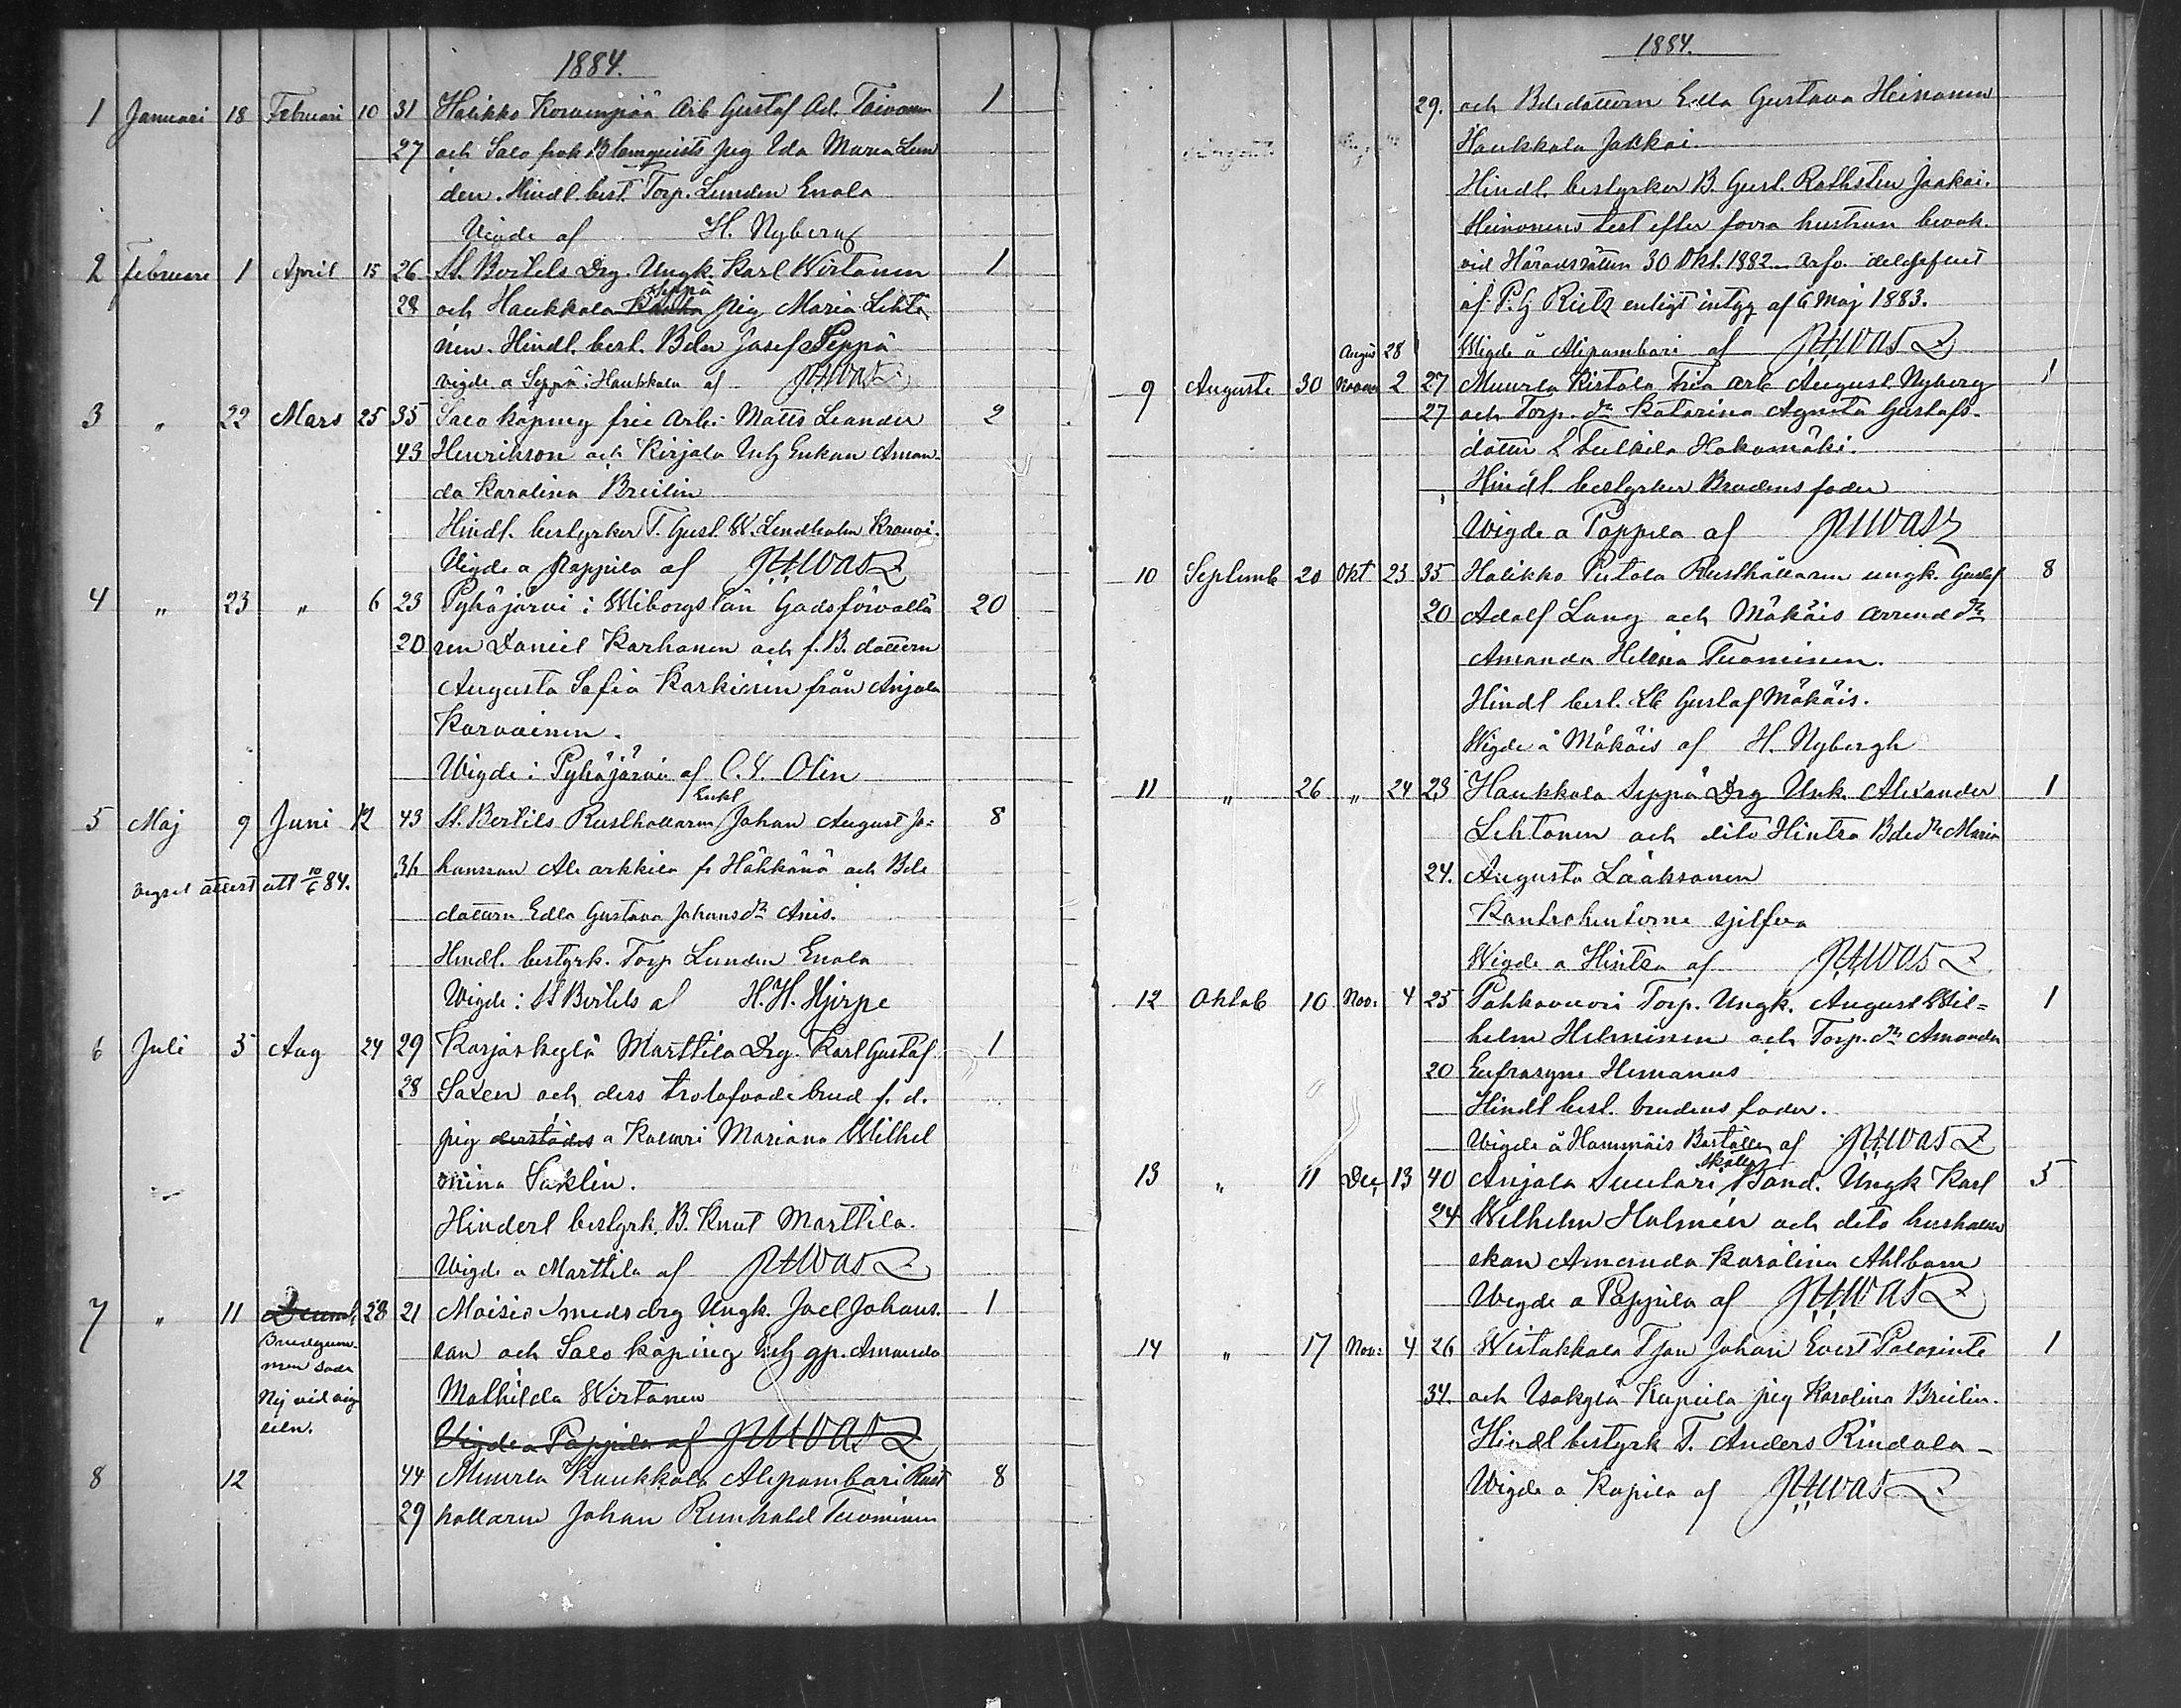 1884.
1 Januari 18 Februari 10 31 Halikko Korvenpää Arb Gustaf Ad. Toivonen 1
27 och Salo frok Blomquists Pig Ida Maria Lin
den. Hindl. best. Torp. Linden Enola
Vigde af H. Nybergh
2 Februari 1 April 15 26 St. Bertels Drg. Ungk. Karl Wirtanen 1
Seppä
28 och Haukkala Pig Maria Lehto
nen. Hindl. best. Bdn Josef Seppä
vigde a Seppä i Haukkala af
3 " 22 Mars 25 35 Salo köping frie Arb: Matts Leander 2
43 Henrikson och Kirjala Inh Enkan Aman
da Karolina Breilin
Hindl. bestyrker T. Gust. W. Lindholm
Vigde a Pappila af
4 " 23 " 6 23 Pyhäjärvi i Wiborgs län Godsförvalta 20
20 ren Daniel Karhonen och f. B. dottern
Augusta Sofia Karkinen från Anjala
Karvainen.
Wigde i Pyhäjärvi af C. Y. Olin
Enkl
5 Maj 9 Juni 12 43 St. Bertils Rusthållaren Johan August Jo= 8
36 hansson Ale arkkila fr Häkkänä och Bde
vigsel attest att 10/6 84.
dottern Edla Gustava Johansdr Anis.
Hindl. bestyrk. Torp Linden Enola
Wigde i St Bertels af H. H. Hjerpe
6 Juli 5 Aug 24 29 Karjaskylä Marttila Drg. Karl Gustaf 1
28 Saxen och dess trolofvade brud f. d.
pig derstädes a Kaluri Mariana Wilhel
mina Saxlin.
Hinderl bestyrk. B. Knut Marttila.
Wigde a Marttila af
7 " 11 Decemb. 28 21 Moisio Smeds drg Ungk. Joel Johans 1
Brudgum-
men sade
Nej vid vig
seln.
son och Salo köping Inh gp. Amanda
Mathilda Wirtanen
Vigde a Pappila af
8 12 44 Muurla Kaukkola Alipambari Rust 8
29 hållaren Johan Reinhold Tuominen
1884.
29. och Bdedottern Edla Gustava Heinonen
Haukkala Jakkai.
Hindl. bestyrker B. Gust. Rothsten Jaakai.
Heinonens test efter förra hustrun bevak.
vid Häradsrätten 30 Okt. 1882
af P. G Rietz enligt intyg af 6 Maj 1883.
Augus 28 Wigde å Alipambari af
9 Auguste 30 Novem 2 27 Muurla Ristola Fria arb August Nyberg 1
27 och Torp. dr Katarina Agneta Gustafs-
dotter Hakamäki.
Hindl. bestyrker Brudens fader
Wigde a Pappila af
10 Septemb 20 Okt 23 35 Halikko Pietola Rusthållaren ungk. Gustaf 8
20 Adolf Lang och Mökäis arrend dr
Amanda Helena Tuominen.
Hindl best. Lb Gustaf Mökäis.
Wigde å Mökäis af H. Nybergh
11 " 26 " 24 23 Haukkala Seppä Drg Unk. Alexander 1
Lehtonen och dito Hintsa Bdedr Maria
24. Augusta Lääksonen
Kontrahenterne sjelfva
Wigde a Hintsa af
12 Oktob 10 Nov: 4 25 Pahkavuori Torp. Ungk. August Wil= 1
helm Helminen och Torp. dr Amanda
20 Eufrosyne Himanus
Hindl best. brudens fader.
Wigde å Hammäis Bostället af
13 " 11 Dec 13 40 Anjala Suutari Bond. Ungk Karl 5
24 Wilhelm Holmén och dito hushåller
skan Amanda Karolina Ahlbom
Wigde a Pappila af
14 " 17 Nov: 4 26 Wiitakkala Tjon Johan Evert Palosinte 1
34. och Isokylä Kupiila pig Karolina Breilin.
Hindl bestyrk T. Anders Rindala –
Wigde a Kupila af